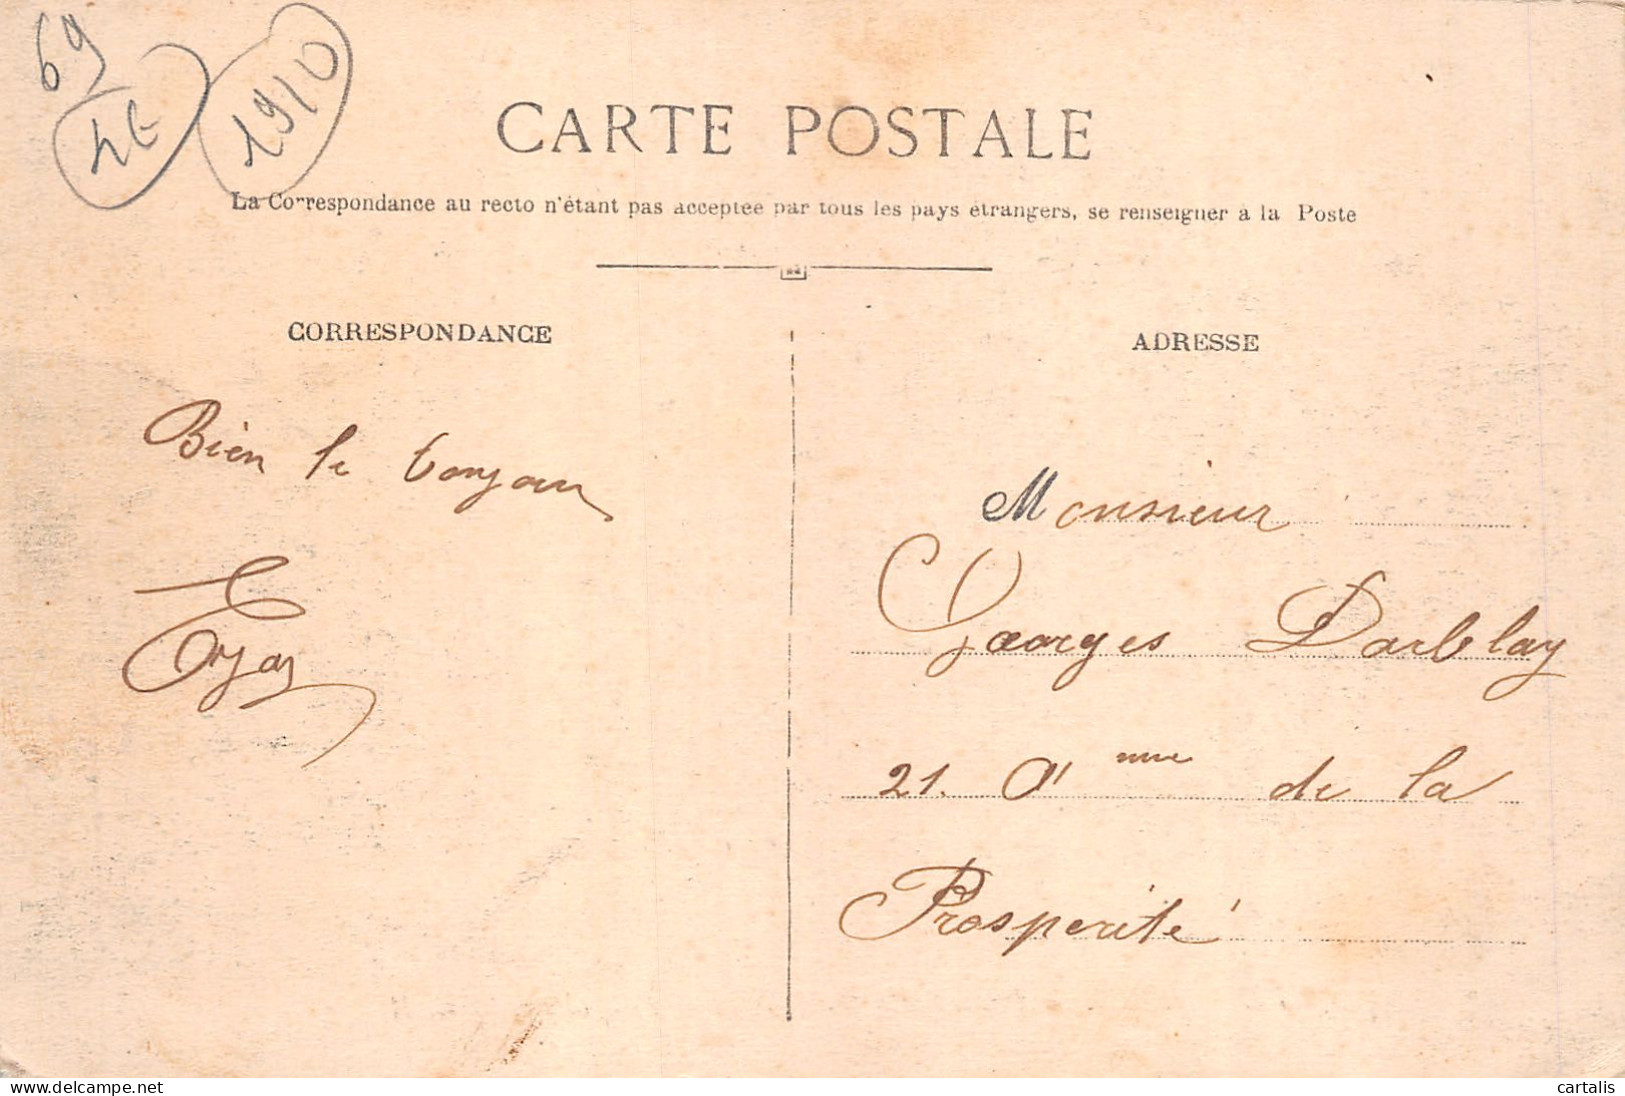 69
1910
CARTE POSTALE
La Correspondance au recto n'étant pas acceptée par tous les pays étrangers, se renseigner à la Poste
CORRESPONDANCE
ADRESSE
Bien le bonjour
Monsieur
Georges Darblay
21. de la
Prosperité
delcampe.net
cartalis